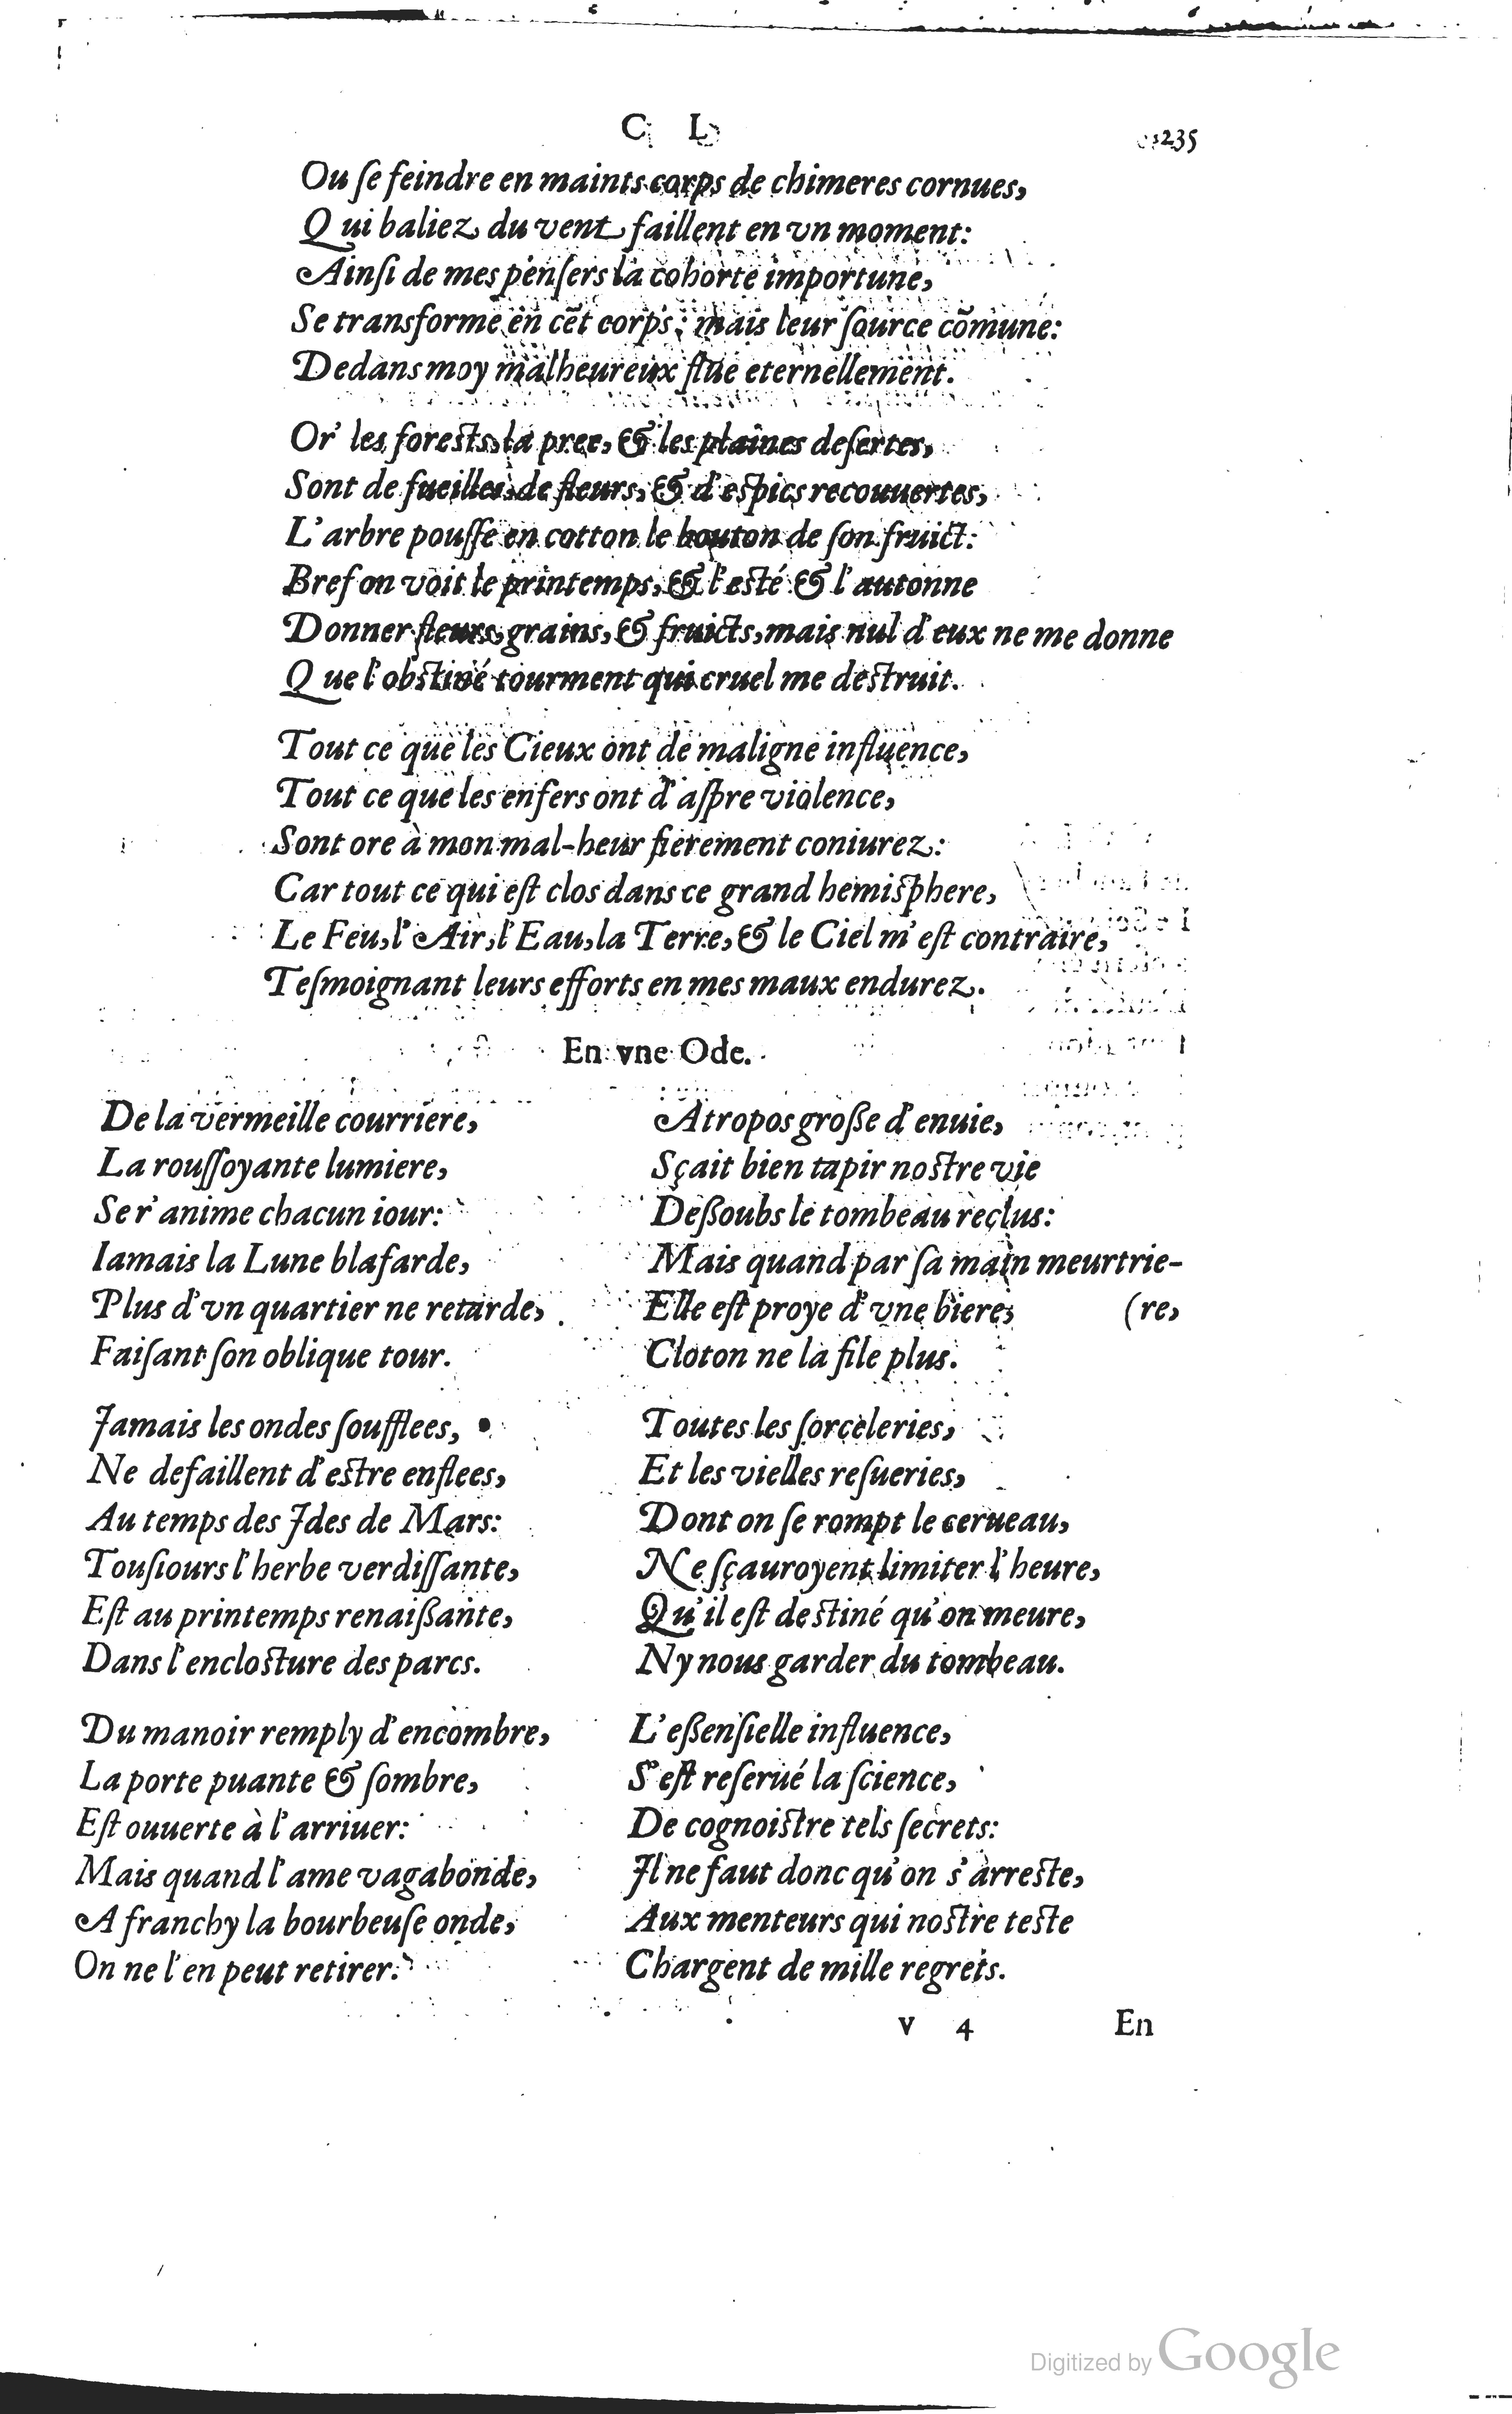 C L 235
Ou ſe feindre en maints corps de chimeres cornues,
Qui baliez du vent faillent en vn moment:
Ainſi de mes penſers la cohorte importune,
Se transforme en cēt corps; mais leur ſource cōmune:
Dedans moy malheureux flue eternellement.
Or' les forests, la pree, & les plaines deſertes,
Sont de fueilles, de fleurs, & d'espics recouuertes,
L'arbre pouſſe en cotton le bouton de ſon fruict:
Bref on voit le printemps, & l'esté & l'autonne
Donner fleurs, grains, & fruicts, mais nul d'eux ne me donne
Que l'obstiné tourment qui cruel me destruit.
Tout ce que les Cieux ont de maligne influence,
Tout ce que les enfers ont d'aſpre violence,
Sont ore à mon mal-heur fierement coniurez:
Car tout ce qui eſt clos dans ce grand hemisphere,
Le Feu, l'Air, l'Eau, la Terre, & le Ciel m'eſt contraire,
Teſmoignant leurs efforts en mes maux endurez.
En vne Ode.
De la vermeille courriere,
La rouſſoyante lumiere,
Se r'anime chacun iour:
Iamais la Lune blafarde,
Plus d'vn quartier ne retarde,
Faiſant ſon oblique tour.
Jamais les ondes ſoufflees,
Ne defaillent d'estre enflees,
Au temps des Jdes de Mars:
Touſiours l'herbe verdiſſante,
Eſt au printemps renaißante,
Dans l'enclosture des parcs.
Du manoir remply d'encombre,
La porte puante & ſombre,
Eſt ouuerte à l'arriuer:
Mais quand l'ame vagabonde,
A franchy la bourbeuſe onde,
On ne l'en peut retirer.
Atropos große d'enuie,
Sçait bien tapir nostre vie
Deßoubs le tombeau reclus:
Mais quand par ſa main meurtrie-
Elle eſt proye d'vne biere, (re,
Cloton ne la file plus.
Toutes les ſorceleries,
Et les vielles reſueries,
Dont on ſe rompt le cerueau,
Ne ſçauroyent limiter l'heure,
Qu'il eſt destiné qu'on meure,
Ny nous garder du tombeau.
L'eßenſielle influence,
S'eſt reſerué la ſcience,
De cognoistre tels ſecrets:
Jl ne faut donc qu'on s'arreste,
Aux menteurs qui nostre teste
Chargent de mille regrets.
v 4 En
Digitized by Google